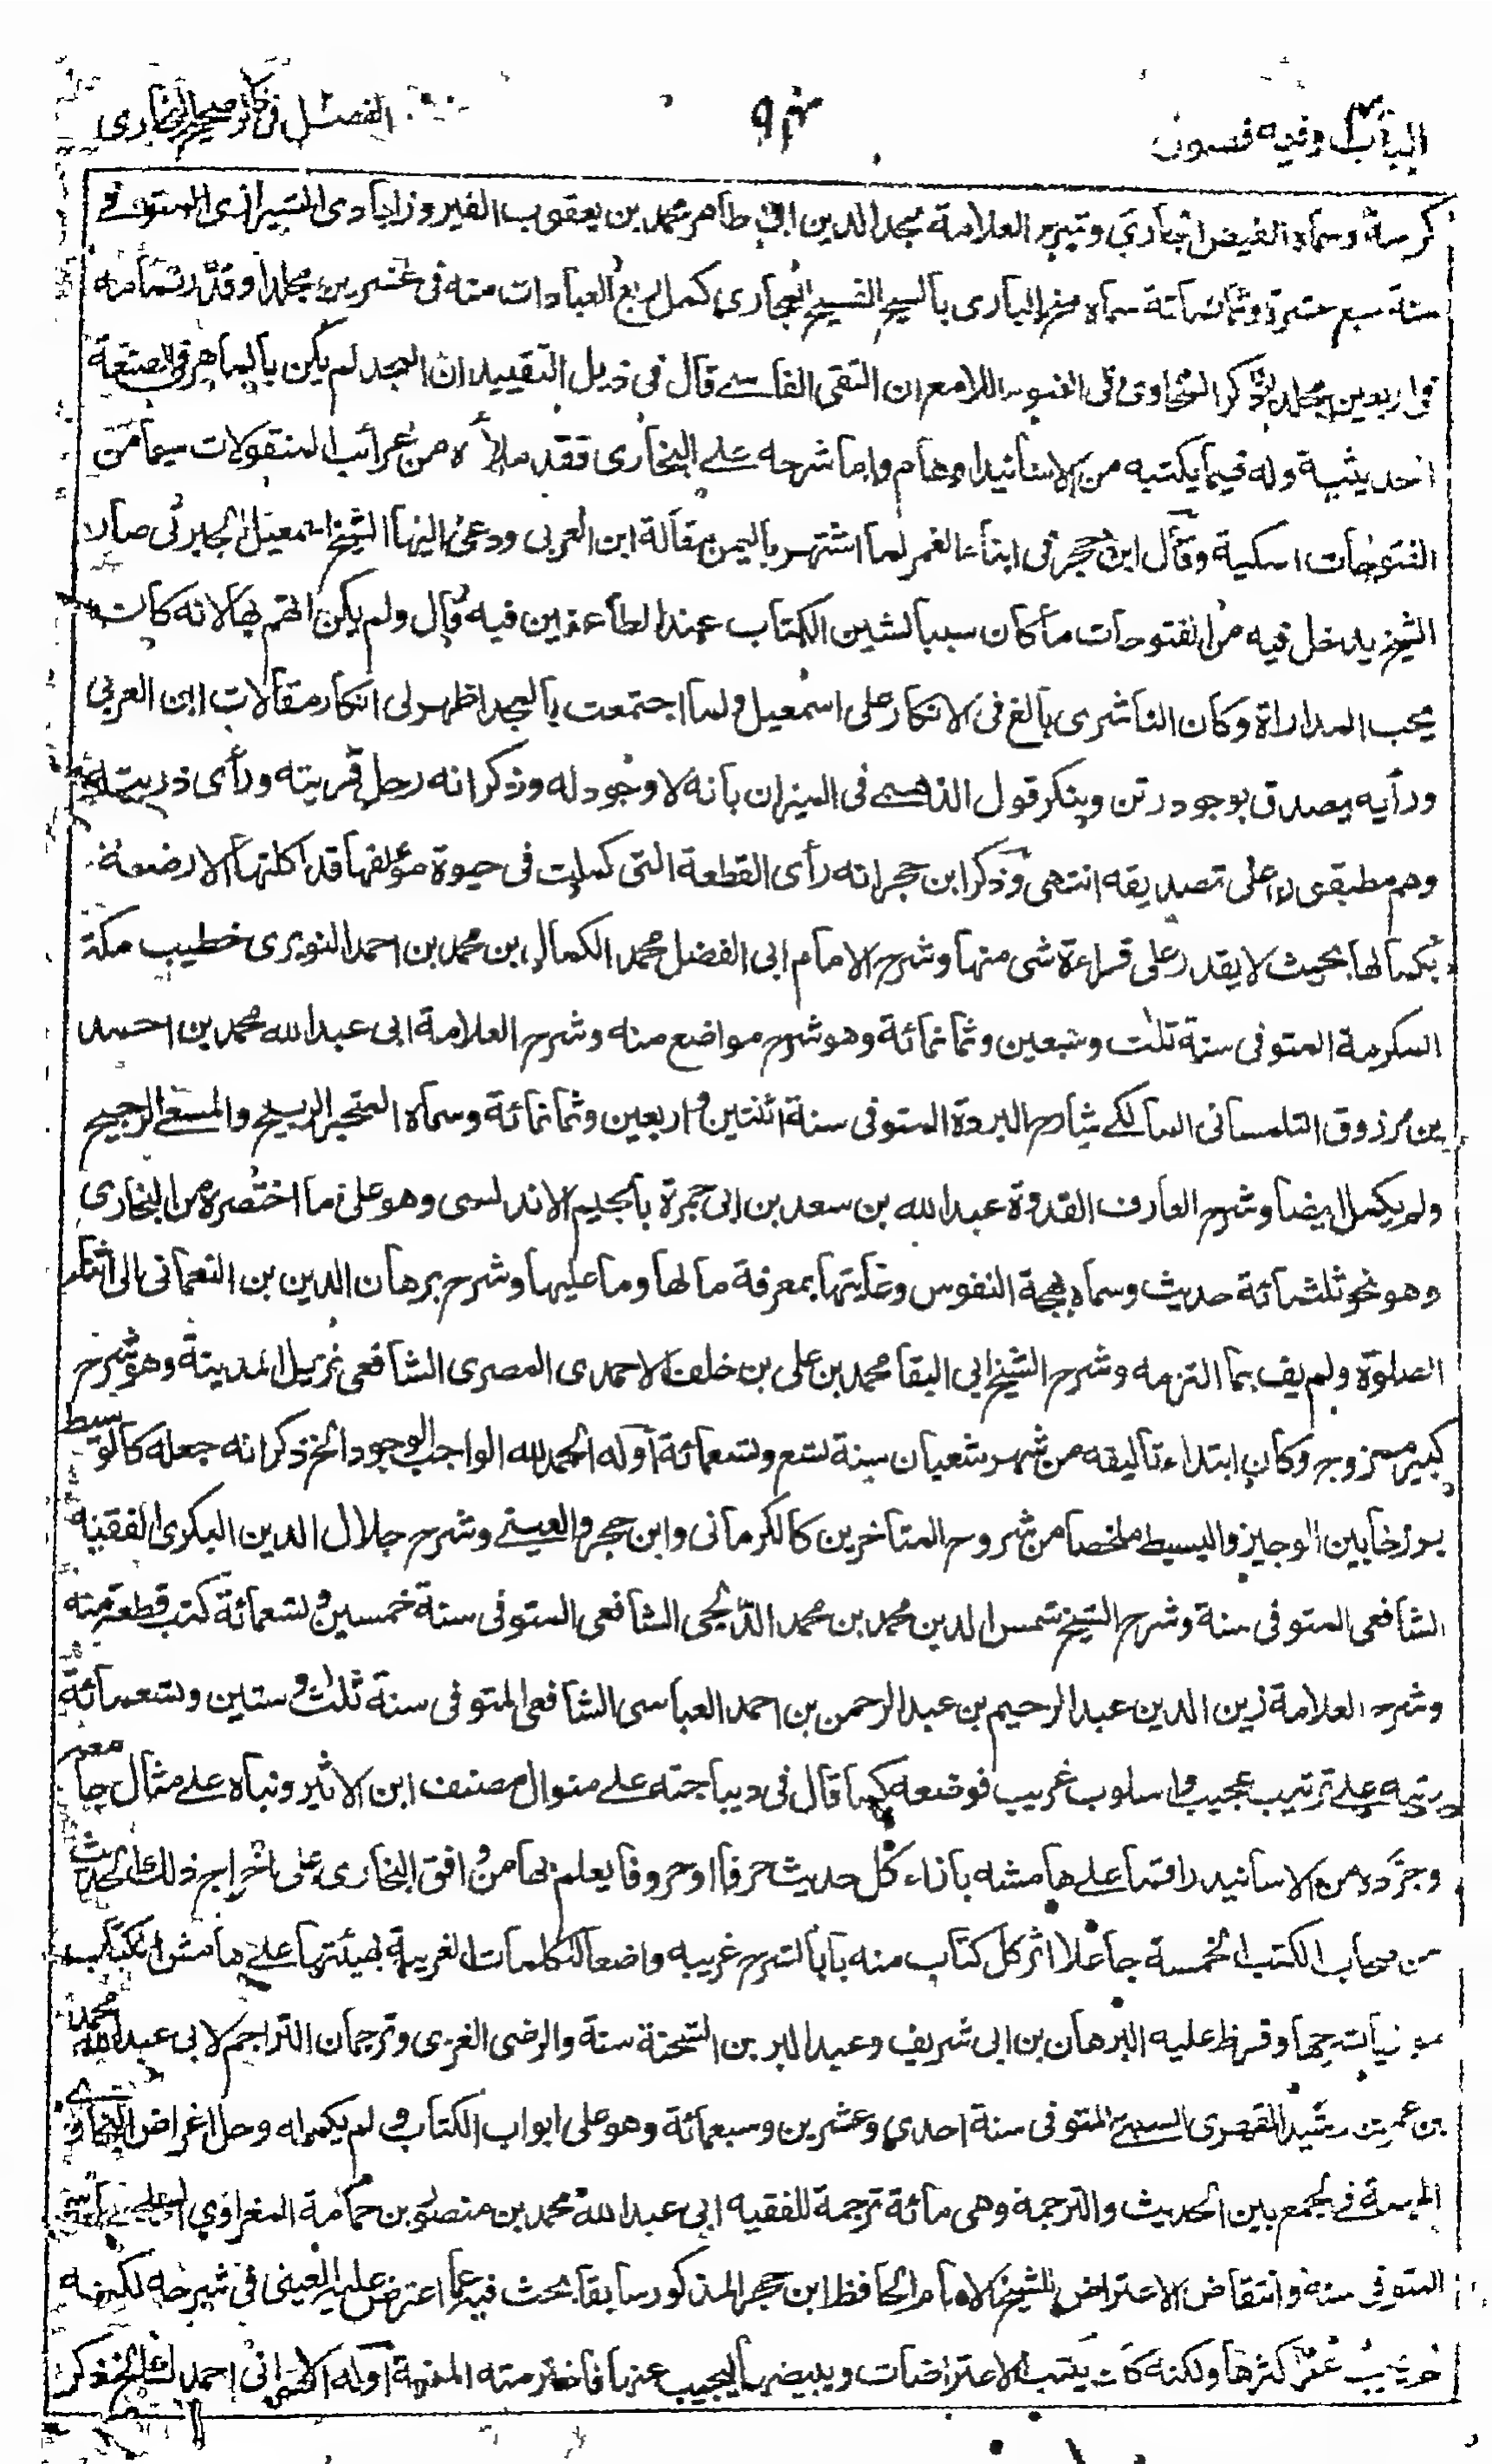 الباب وفيه فصول ٩٣ الفصل في ذكر صحيح البخاري
كراسة وسماه الفيض الجاري وشرح العلامة مجد الدين ابي طاهر محمد بن يعقوب الفيروزابادي الشيرازي المتوفى
سنة سبع عشرة وثمانمائة سماه منح الباري بالسيح الفسيح الجاري كمل ربع العبادات منه في عشرين مجلدا وقدر تمامه
في اربعين مجلدا ذكر السخاوي في الضوء اللامع ان التقي الفاسي قال في ذيل التقييد ان المجد لم يكن بالماهر في الصنعة
الحديثية وله فيما يكتبه من الاسانيد اوهام واما شرحه على البخاري فقد ملأه من غرائب المنقولات سيما من
الفتوحات المكية وقال ابن حجر في انباء الغمر لما اشتهر باليمن مقالة ابن العربي ودعى اليها الشيخ اسمعيل الجبرتي صار
الشيخ يدخل فيه من الفتوحات ما كان سببا لشين الكتاب عند الطاعنين فيه قال ولم يكن اتهم بها لانه كان
يحب المداراة وكان الناشري بالغ في الانكار على اسمعيل ولما اجتمعت بالمجد اظهر لي انكار مقالات ابن العربي
ورأيه يصدق بوجود رتن وينكر قول الذهبي في الميزان بانه لا وجود له وذكر انه دخل قريته ورأى ذريته
وهم مطبقون على تصديقه انتهى وذكر ابن حجر انه رأى القطعة التي كملت في حيوة مؤلفها قد اكلتها الارضة
بكمالها بحيث لا يقدر على قراءة شئ منها وشرح الامام ابي الفضل محمد الكمال بن محمد بن احمد النويري خطيب مكة
المكرمة المتوفى سنة ثلث وسبعين وثمانمائة وهو شرح مواضع منه وشرح العلامة ابي عبد الله محمد بن احمد
بن مرزوق التلمساني المالكي شارح البردة المتوفى سنة اثنتين واربعين وثمانمائة وسماه المتجر الربيح والمسعى الرجيح
ولم يكمل ايضا وشرح العارف القدوة عبد الله بن سعد بن ابي جمرة بالجيم الاندلسي وهو على ما اختصره من البخاري
وهو نحو ثلثمائة حديث وسماه بهجة النفوس وغايتها بمعرفة ما لها وما عليها وشرح برهان الدين بن النعماني الى اثناء
الصلوة ولم يف بما التزمه وشرح الشيخ ابي البقا محمد بن علي بن خلف الاحمدي المصري الشافعي نزيل المدينة وهو شرح
كبير ممزوج وكان ابتداء تاليفه من شهر شعبان سنة تسع وتسعمائة اوله الحمد لله الواجب الوجود الخ ذكر انه جعله كالوسيط
برزخا بين الوجيز والبسيط ملخصا من شروح المتاخرين كالكرماني وابن حجر والعيني وشرح جلال الدين البكري الفقيه
الشافعي المتوفى سنة وشرح الشيخ شمس الدين محمد بن محمد الدلجي الشافعي المتوفى سنة خمسين وتسعمائة كتب قطعة منه
وشرح العلامة زين الدين عبد الرحيم بن عبد الرحمن بن احمد العباسي الشافعي المتوفى سنة ثلث وستين وتسعمائة
رتبه على ترتيب عجيب واسلوب غريب فوضعه كما قال في ديباجته على منوال مصنف ابن الاثير وبناه على مثال جامعه
وجرده من الاسانيد راقما على هامشه بازاء كل حديث حرفا او حروفا يعلم بها من وافق البخاري على اخراج ذلك الحديث
من اصحاب الكتب الخمسة جاعلا اثر كل كتاب منه بابا لشرح غريبه واضعا الكلمات الغريبة بهيئتها على هامش الكتاب
وقرظ عليه البرهان بن ابي شريف وعبد البر بن الشحنة سنة والرضي الغزي وترجمان التراجم لابي عبد الله محمد
بن عمر بن رشيد الفهري السبتي المتوفى سنة احدى وعشرين وسبعمائة وهو على ابواب الكتاب ولم يكمله وحل اغراض البخاري
المبهمة في الجمع بين الحديث والترجمة وهي مائة ترجمة للفقيه ابي عبد الله محمد بن منصور بن حمامة المغراوي السجلماسي
المتوفى سنة وانتقاض الاعتراض للشيخ الامام الحافظ ابن حجر المذكور سابقا بحث فيه عما اعترض عليه العيني في شرحه لكنه
لم يجب عن اكثرها ولكنه كان يكتب الاعتراضات ويبيضها ليجيب عنها فاخترمته المنية اوله اللهم اني احمدك الخ ذكر